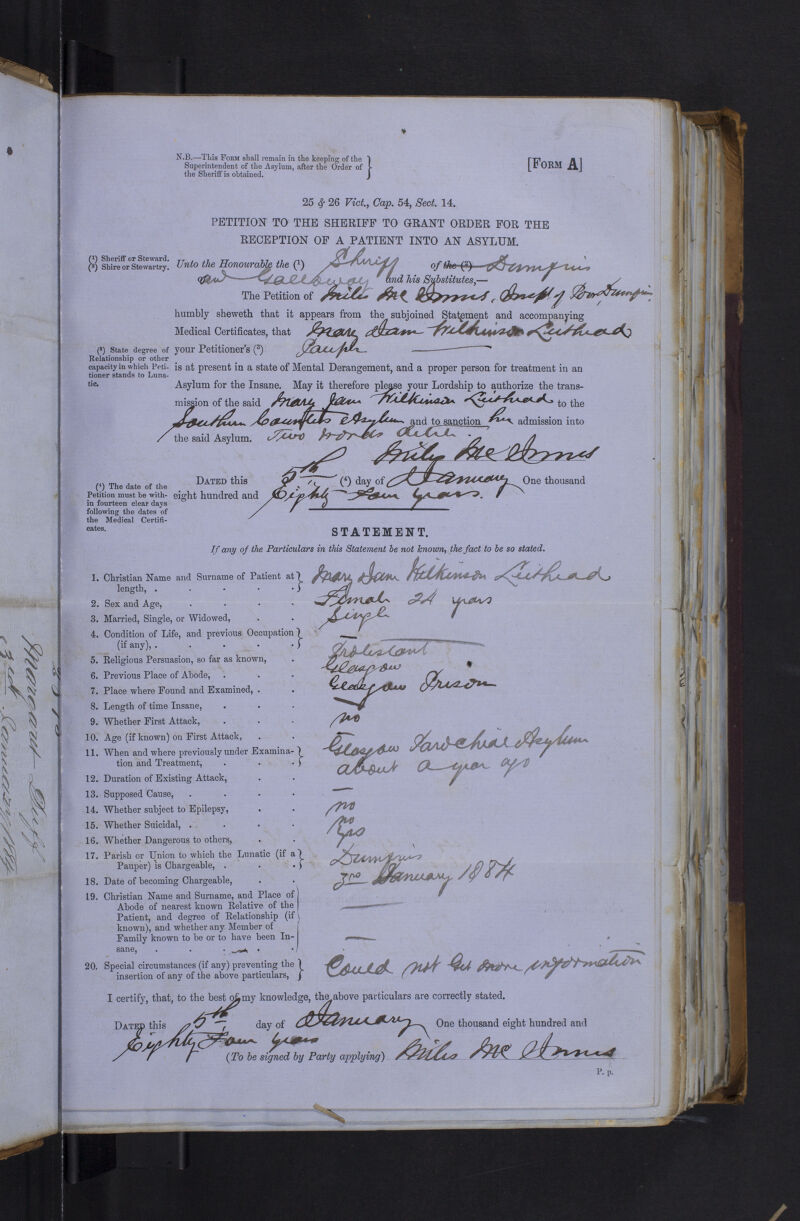 N.B.—This Form shall remain in the keeping of the
Superintendent of the Asylum, after the Order of
the Sheriff is obtained.
[Form A]
25 & 26 Vict., Cap. 54, Sect. 14.
PETITION TO THE SHERIFF TO GRANT ORDER FOR THE
RECEPTION OF A PATIENT INTO AN ASYLUM.
(1) Sheriff or Steward.
(2) Shire or Stewartry.
Unto the Honourable the (1) Sheriff of the (2) Dumfries
and Galloway and his Substitutes,—
The Petition of Miles Mc Innes, Insptr of Poor, Dumfries,
humbly sheweth that it appears from the subjoined Statement and accompanying
Medical Certificates, that Mary Jane Wilkinson Leithead
(3) State degree of
Relationship or other
capacity in which Peti-
tioner stands to Luna-
tic.
your Petitioner's (3) Pauper
is at present in a state of Mental Derangement, and a proper person for treatment in an
Asylum for the Insane. May it therefore please your Lordship to authorize the trans-
mission of the said Mary Jane Wilkinson Leithead to the
Southern Counties Asylum and to sanction her admission into
the said Asylum. Two words delete.
Miles Mc Innes
(4) The date of the
Petition must be with-
in fourteen clear days
following the dates of
the Medical Certifi-
cates.
Dated this 5th (4) day of January One thousand
eight hundred and Eighty Four years.
STATEMENT.
If any of the Particulars in this Statement be not known, the fact to be so stated.
1. Christian Name and Surname of Patient at length, Mary Jane Wilkinson Leithead
2. Sex and Age, Female 24 years
3. Married, Single, or Widowed, Single
4. Condition of Life, and previous Occupation (if any), —
5. Religious Persuasion, so far as known, Protestant
6. Previous Place of Abode, Glasgow
7. Place where Found and Examined, Glasgow Prison
8. Length of time Insane, —
9. Whether First Attack, no
10. Age (if known) on First Attack,
11. When and where previously under Examina-
tion and Treatment, Glasgow Parochial Asylum
about a year ago
12. Duration of Existing Attack,
13. Supposed Cause, —
14. Whether subject to Epilepsy, no
15. Whether Suicidal, no
16. Whether Dangerous to others, yes
17. Parish or Union to which the Lunatic (if a
Pauper) is Chargeable, Dumfries
18. Date of becoming Chargeable, 3rd January 1884
19. Christian Name and Surname, and Place of
Abode of nearest known Relative of the
Patient, and degree of Relationship (if
known), and whether any Member of
Family known to be or to have been In-
sane, —
20. Special circumstances (if any) preventing the
insertion of any of the above particulars, Could not get more information
I certify, that, to the best of my knowledge, the above particulars are correctly stated.
Dated this 5th day of January One thousand eight hundred and
Eighty Four years
(To be signed by Party applying) Miles Mc Innes
P. p.